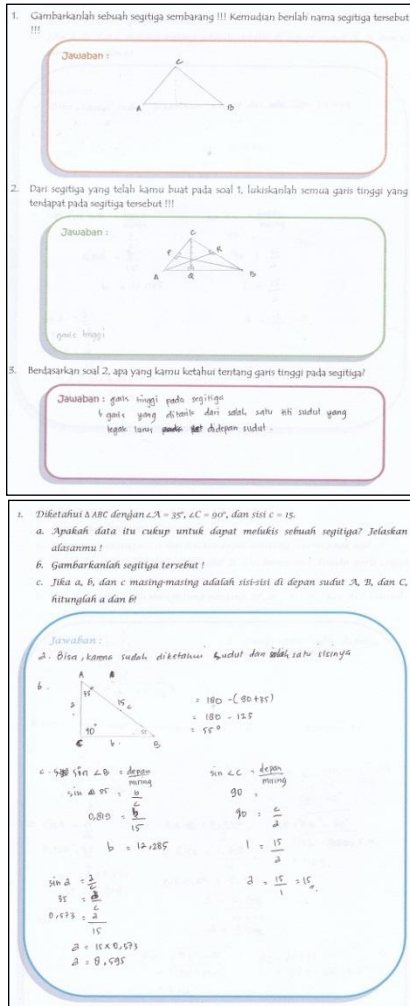 1. Gambarkanlah sebuah segitiga sembarang !!! Kemudian berilah nama segitiga tersebut
!!!
Jawaban :
C
A B
2. Dari segitiga yang telah kamu buat pada soal 1, lukiskanlah semua garis tinggi yang
terdapat pada segitiga tersebut !!!
Jawaban :
C
P R
A Q B
garis tinggi
3. Berdasarkan soal 2, apa yang kamu ketahui tentang garis tinggi pada segitiga?
Jawaban : garis tinggi pada segitiga
garis yang ditarik dari salah satu titi sudut yang
tegak lurus didepan sudut.
1. Diketahui Δ ABC dengan ∠A = 35°, ∠C = 90°, dan sisi c = 15.
a. Apakah data itu cukup untuk dapat melukis sebuah segitiga? Jelaskan
alasanmu !
b. Gambarkanlah segitiga tersebut !
c. Jika a, b, dan c masing-masing adalah sisi-sisi di depan sudut A, B, dan C,
hitunglah a dan b!
Jawaban :
a. Bisa, karena sudah diketahui sudut dan salah satu sisinya
b.
A
35°
a 15 c
90° 55
C b B
= 180 - (90+35)
= 180 - 125
= 55°
c. sin ∠B = depan
miring
sin 55 = b
c
0,819 = b
15
b = 12,285
sin ∠C = depan
miring
90 =
90 = c
a
1 = 15
a
a = 15 = 15
1
sin a = a
c
35 = a
c
0,573 = a
15
a = 15 x 0,573
a = 8,595